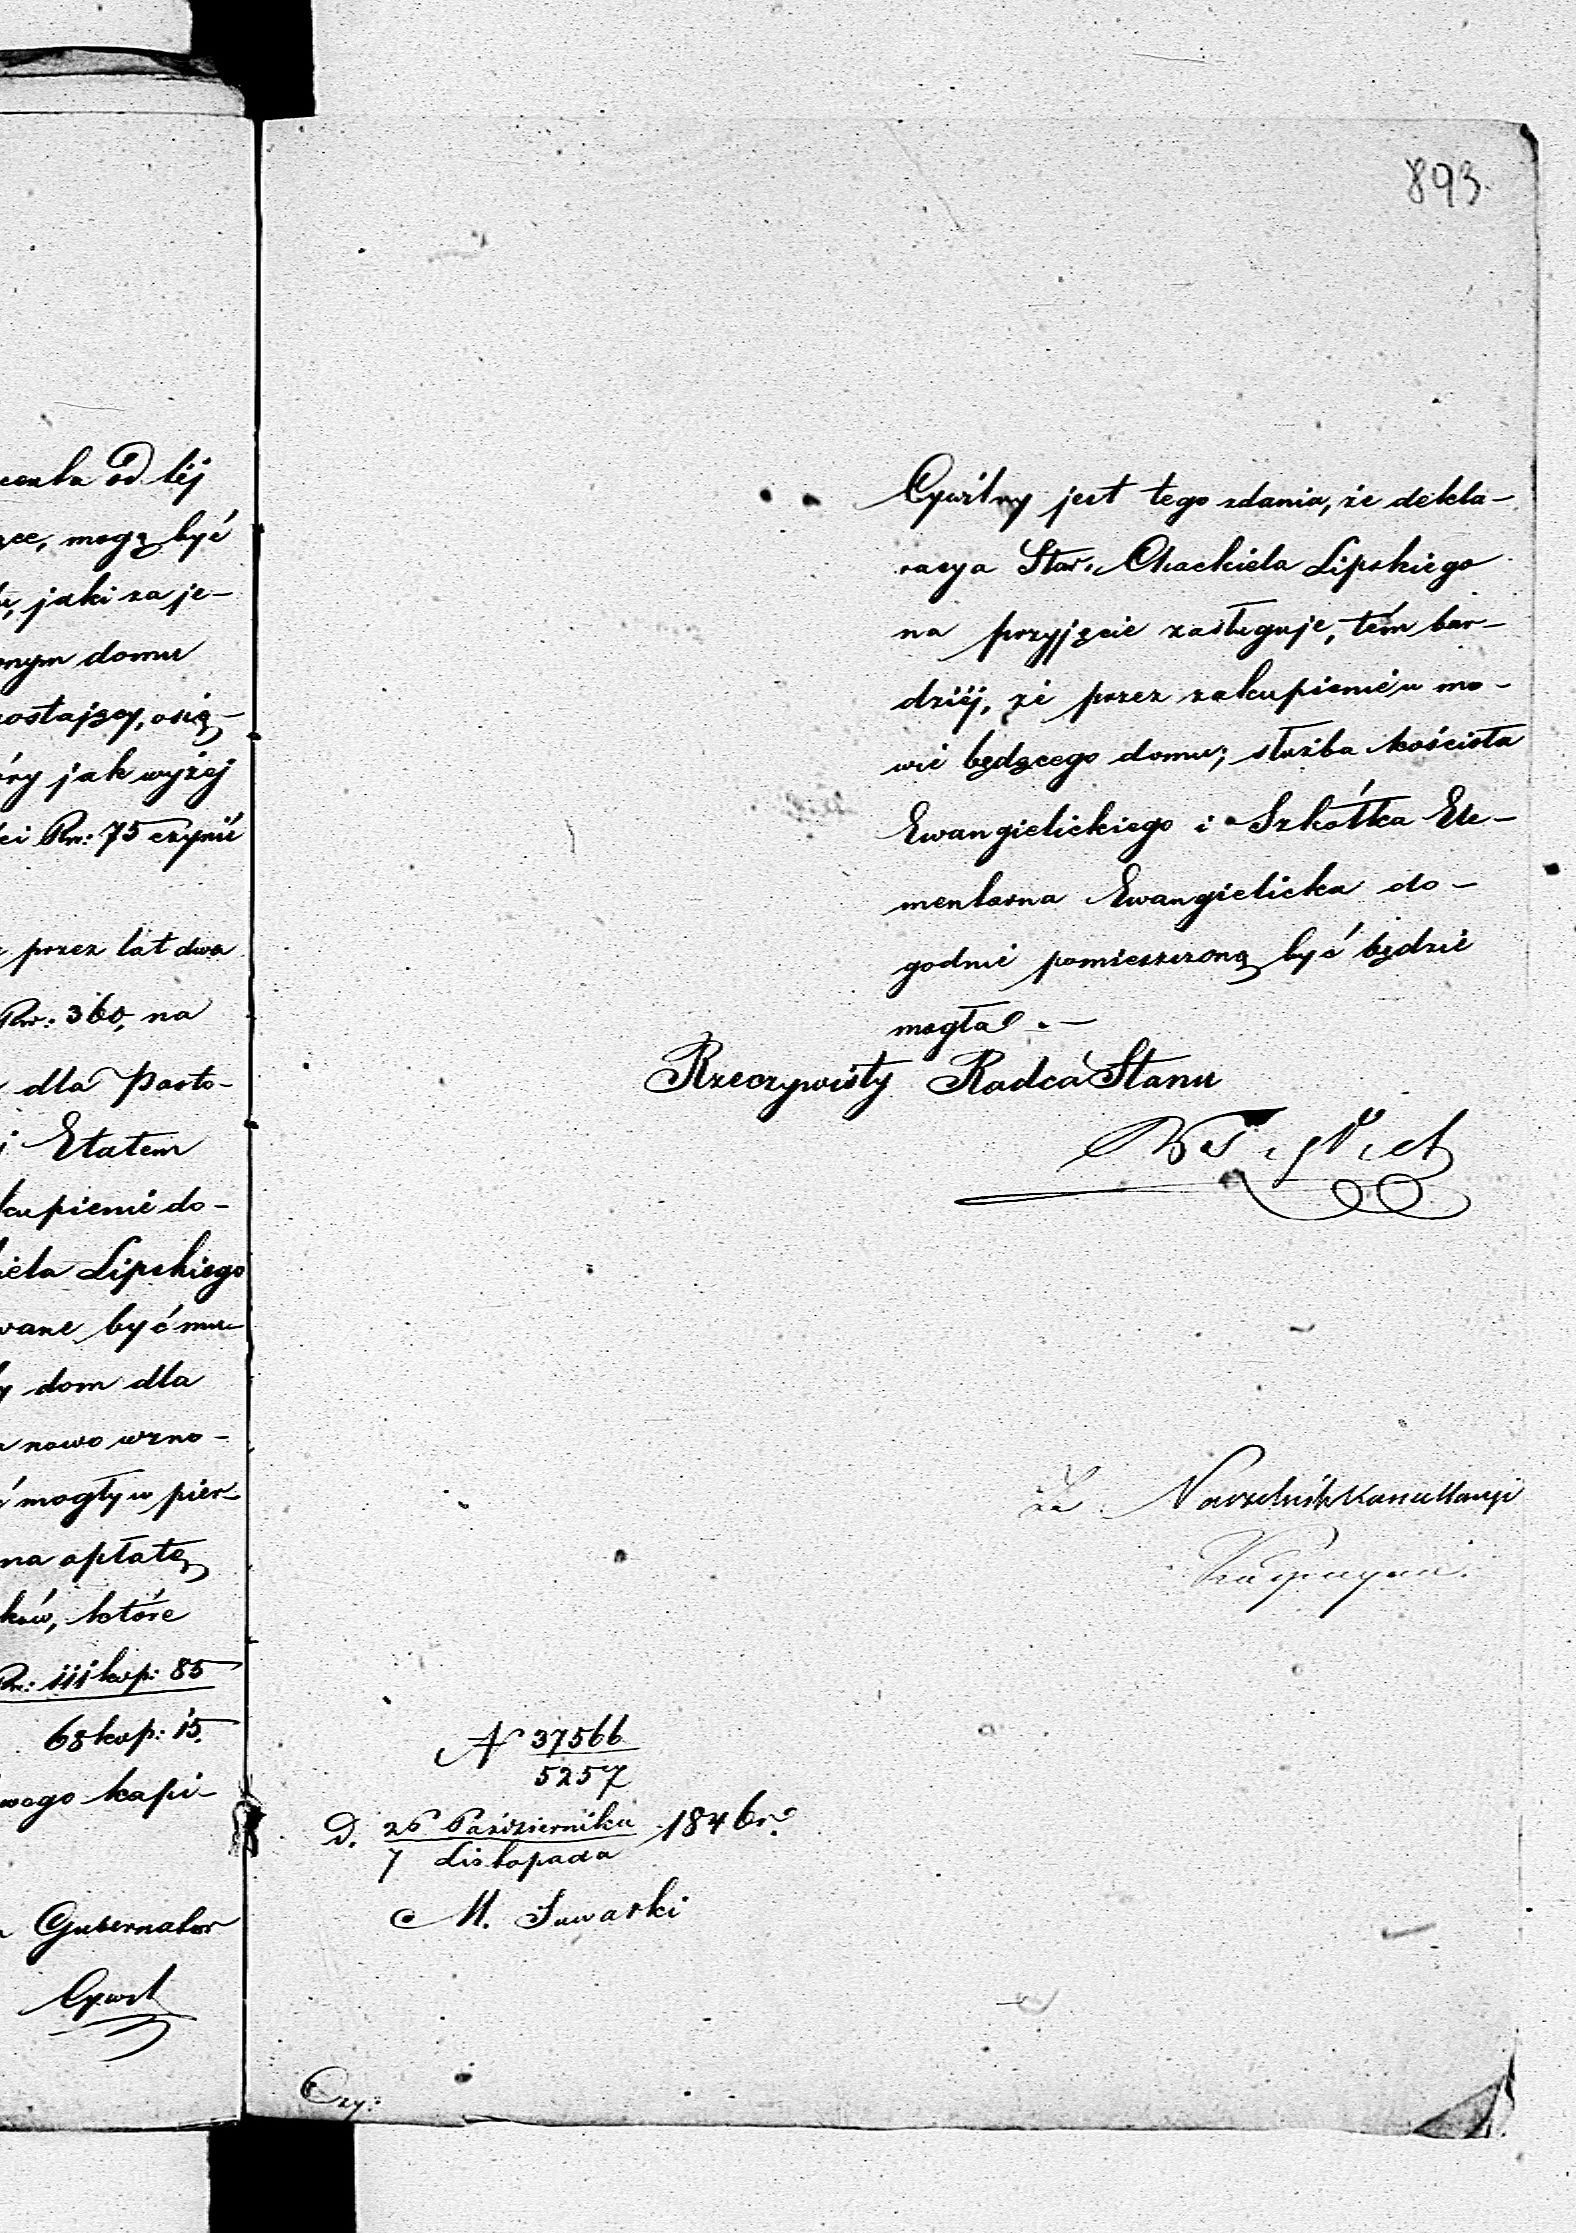 893.
od téj
mogą być
jaki za je-
domu
jak wyżéj
Rsr: 75 czynić
przez lat dwa
Rsr: 360, na
dla Pasto-
Etatem
do-
Lipskiego
być mu-
dom dla
nowo wzno-
mogły w pier-
na opłatę
które
Rsr: 111 kop: 85
68 kop: 15.
kapi-
Gubernator
Cywil
Cywilny jest tego zdania, że dekla-
racya Star. Chackiela Lipskiego
na przyjęcie zasługuje, tém bar-
dziéj, że przez zakupienie w mo-
wie będącego domu, służba kościoła
Ewangielickiego i Szkółka Ele-
mentarna Ewangielicka do-
godnie pomieszczoną być będzie
mogła. -
Rzeczywisty Radca Stanu
za Naczelnik Kancellaryi
N 37566
5257
D. 26 Października 1846 r.
7 Listopada
M. Suwarski